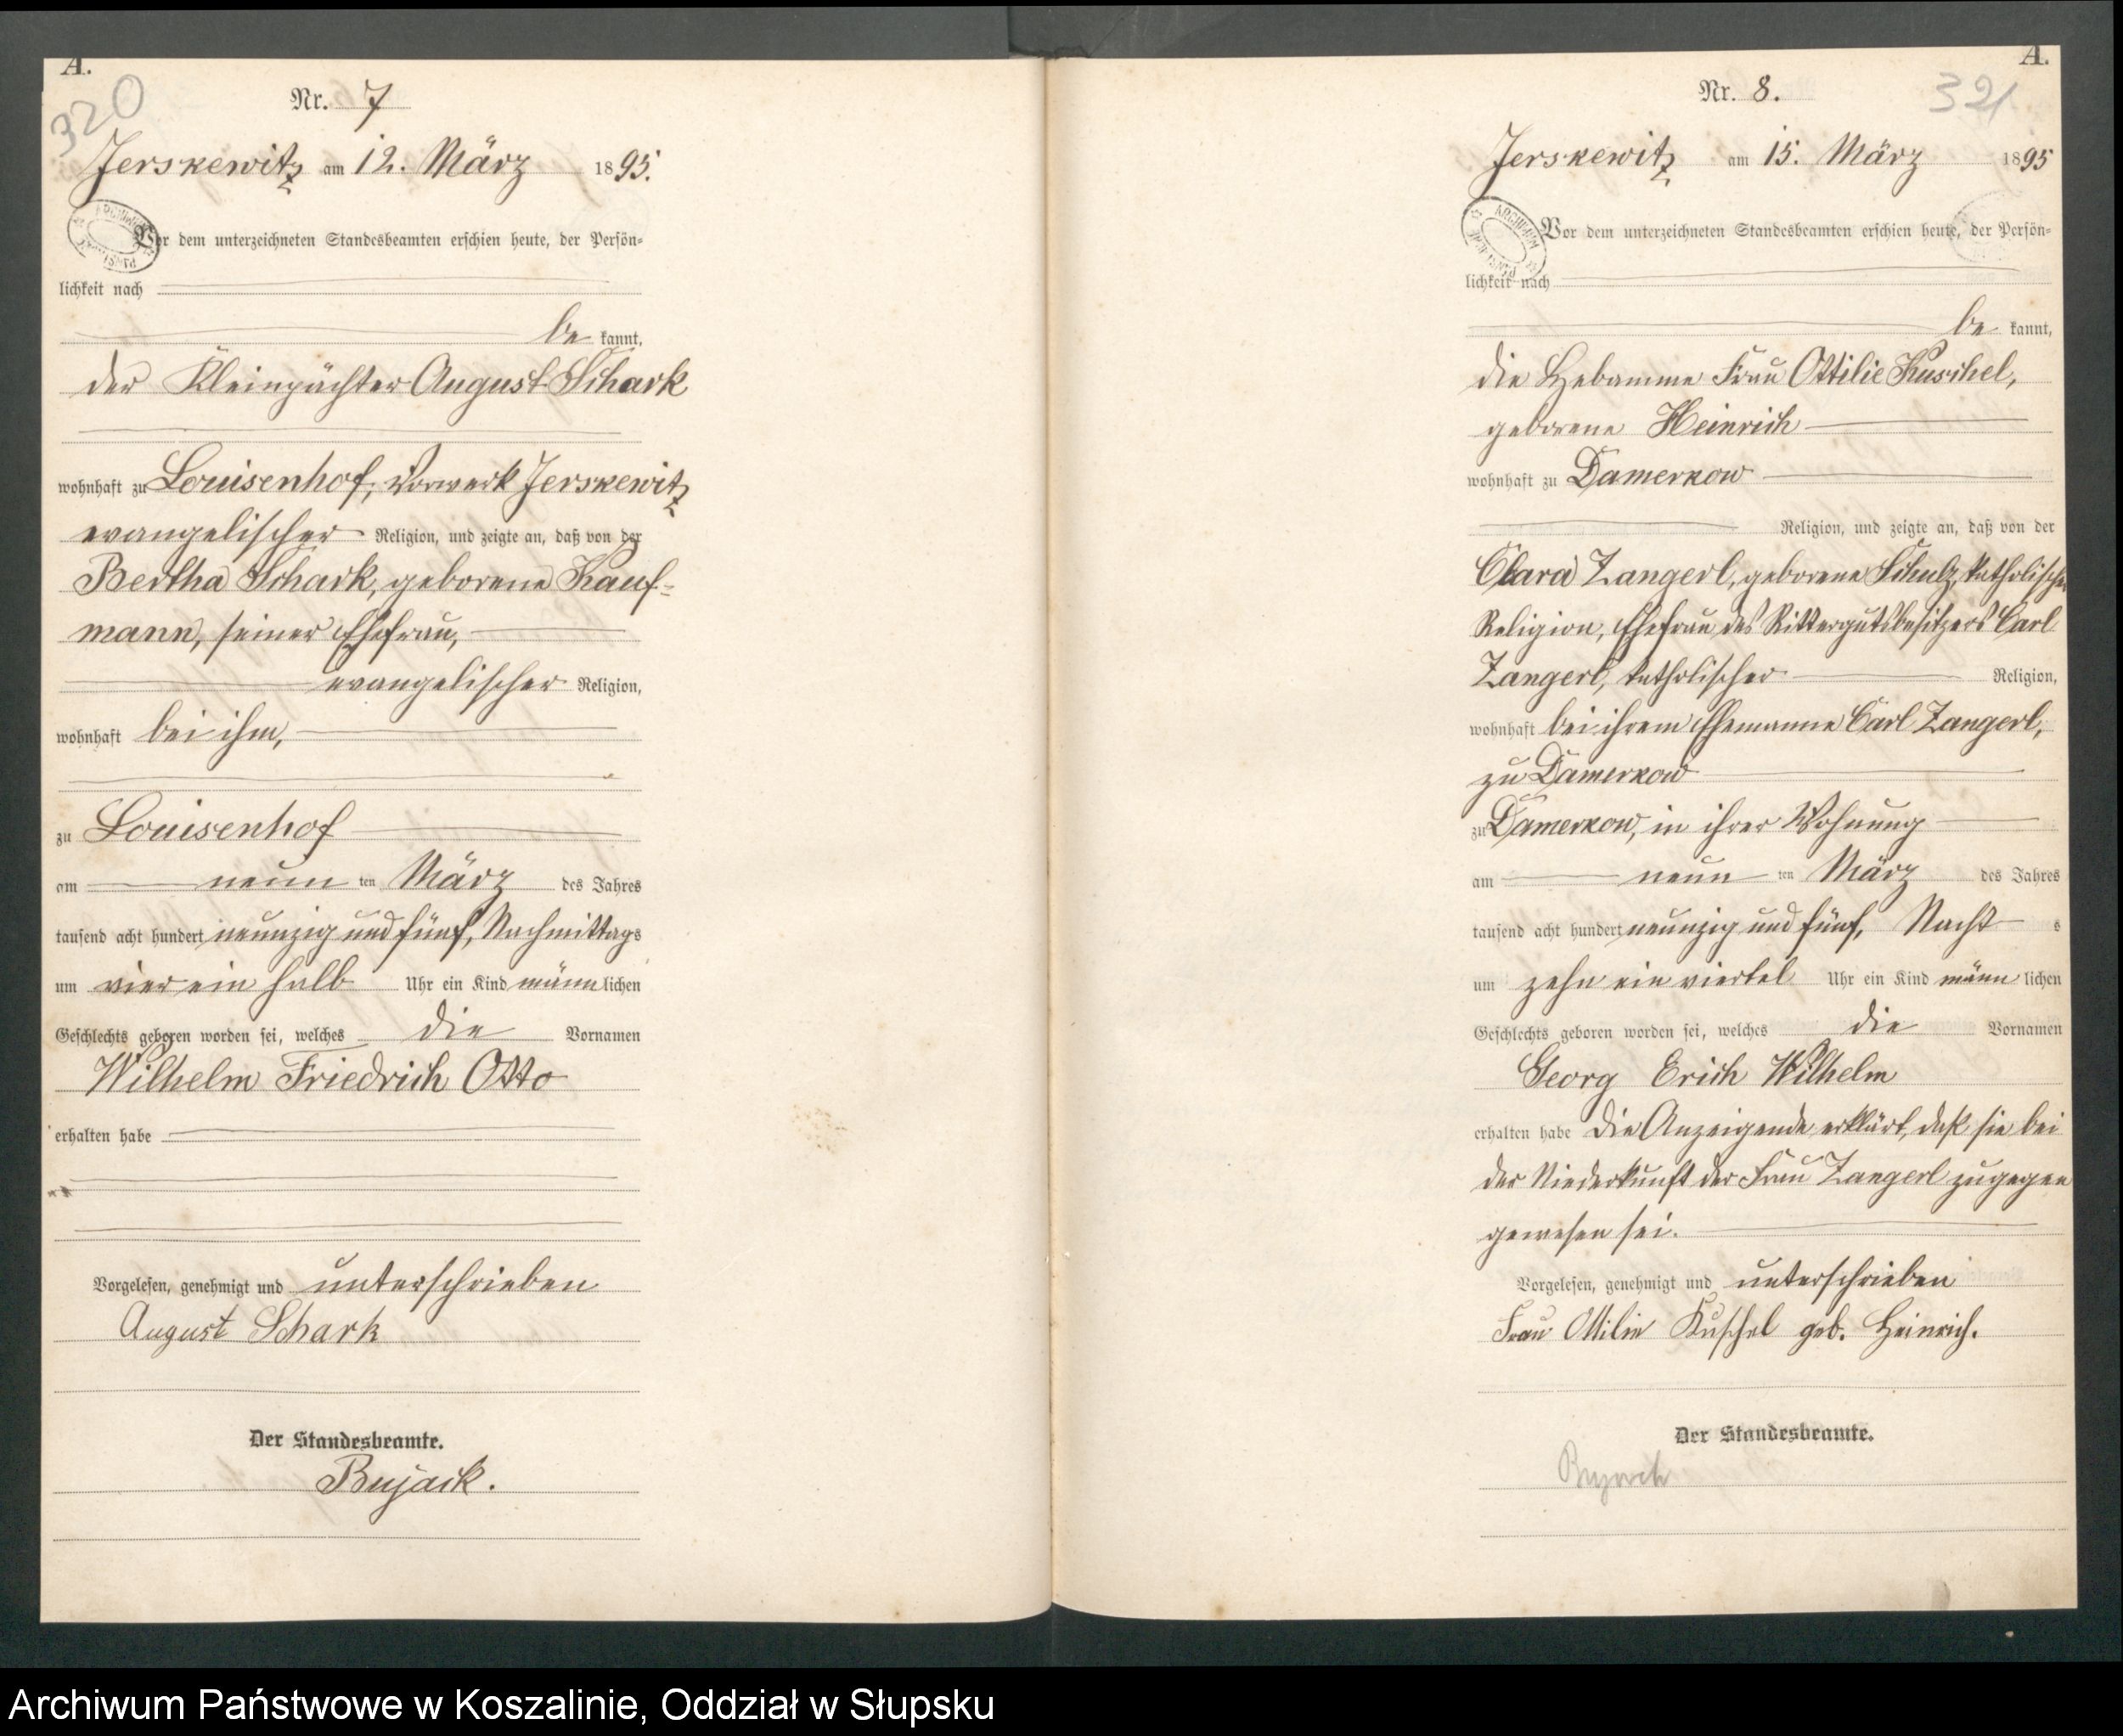 A.
320
Nr. 7
Jerskewitz am 12. März 1895.
Vor dem unterzeichneten Standesbeamten erschien heute, der Persön=
lichkeit nach
be kannt,
der Kleinpächter August Schark
wohnhaft zu Louisenhof, Vorwerk Jerskewitz
evangelischer Religion, und zeigte an, daß von der
Bertha Schark, geborene Kauf-
mann, seiner Ehefrau,
evangelischer Religion,
wohnhaft bei ihm,
zu Louisenhof
am neun ten März des Jahres
tausend acht hundert neunzig und fünf, Nachmittags
um vier ein halb Uhr ein Kind männlichen
Geschlechts geboren worden sei, welches die Vornamen
Wilhelm Friedrich Otto
erhalten habe
Vorgelesen, genehmigt und unterschrieben
August Schark
Der Standesbeamte.
Bujack.
A.
321
Nr. 8.
Jerskewitz am 15. März 1895
ARCHIWUM
Vor dem unterzeichneten Standesbeamten erschien heute, der Persön=
lichkeit nach
be kannt,
die Hebamme Frau Ottilie Kuschel,
geborene Heinrich
wohnhaft zu Damerkow
Religion, und zeigte an, daß von der
Clara Zangerl, geborene Schulz, katholischer
Religion, Ehefrau des Rittergutsbesitzers Carl
Zangerl, katholischer Religion,
wohnhaft bei ihrem Ehemanne Carl Zangerl,
zu Damerkow
zu Damerkow, in ihrer Wohnung
am neun ten März des Jahres
tausend acht hundert neunzig und fünf, Nacht s
um zehn ein viertel Uhr ein Kind männ lichen
Geschlechts geboren worden sei, welches die Vornamen
Georg Erich Wilhelm
erhalten habe Die Anzeigende erklärt, daß sie bei
der Niederkunft der Frau Zangerl zugegen
gewesen sei.
Vorgelesen, genehmigt und unterschrieben
Frau Ottilie Kuschel geb. Heinrich.
Der Standesbeamte.
Bujack
Archiwum Państwowe w Koszalinie, Oddział w Słupsku